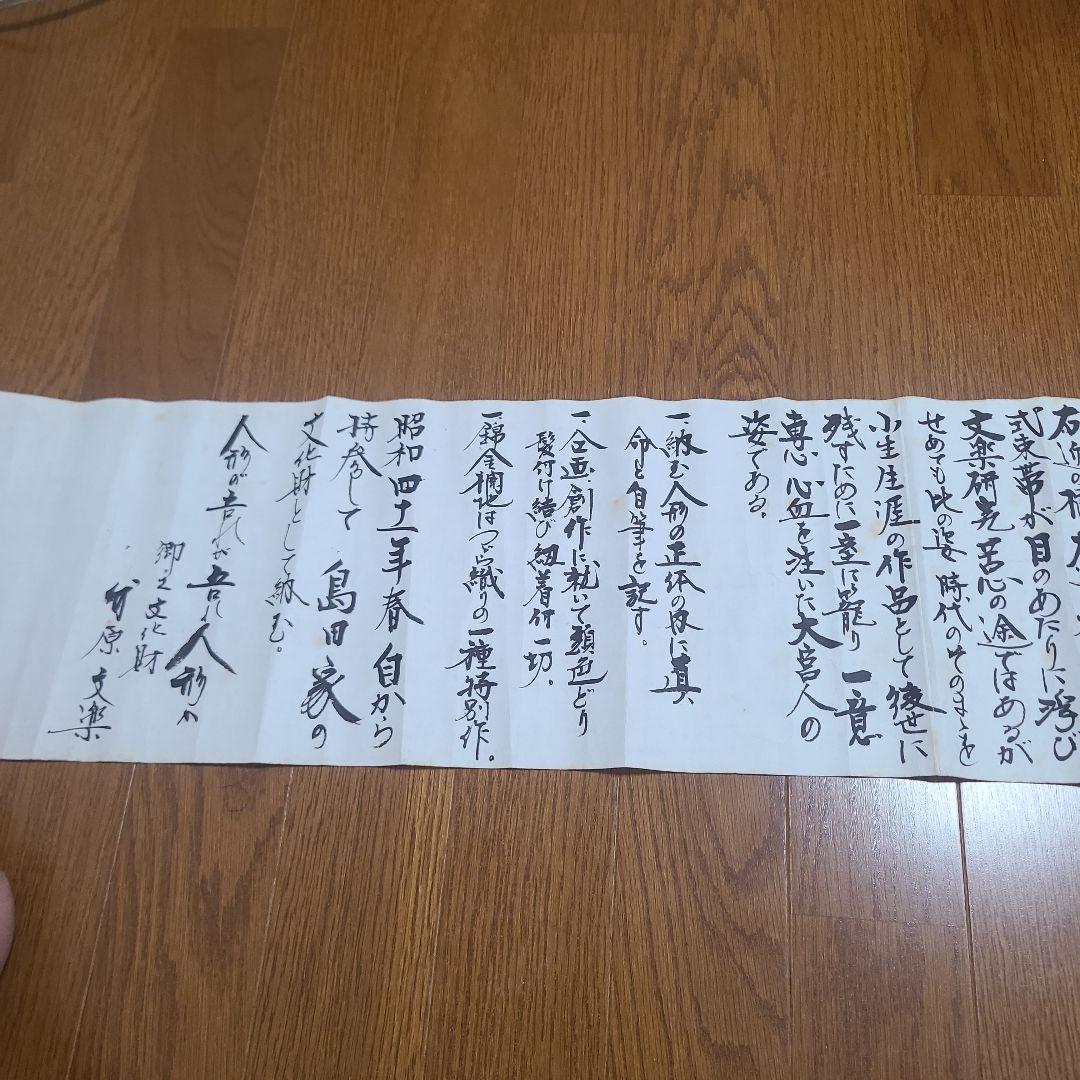 右近の桜 左
式束帯が目のあたりに浮び
文楽研究苦心の途ではあるが
せめても此の姿 時代のそのまゝを
小生生涯の作品として後世に
残すために一室に籠り 一意
専心 心血を注いだ大宮人の
姿である。
一、納む人形の正体の内に真
命と自筆を記す。
一、企画、創作に就いて頭色どり
髪付け結び 紐着付一切。
一、錦金襴地はつゞら織りの一種特別作。
昭和四十一年春 自から
持参して 島田家の
文化財として納む。
人形が吾れか吾れ人形か
郷土文化財
原文楽